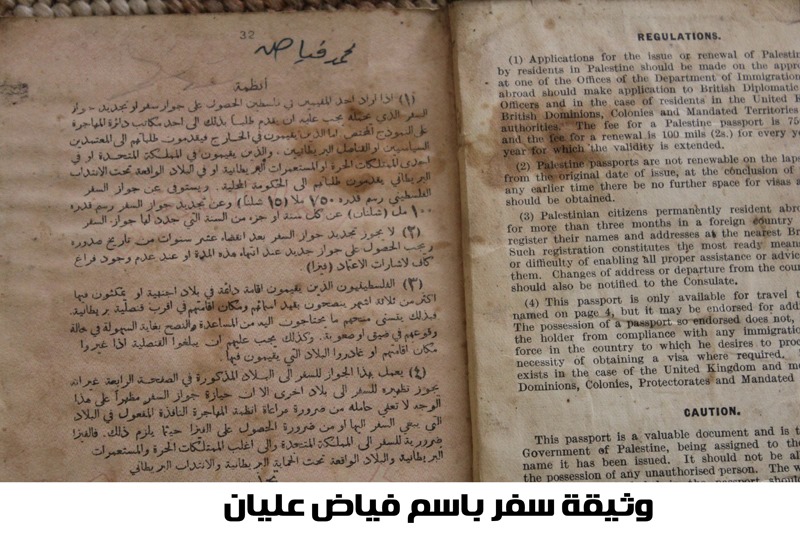 32
محمد فياض
أنظمة
(١) اذا اراد احد المقيمين في فلسطين الحصول على جواز سفر او تجديد جواز
السفر الذي يحمله يجب عليه ان يقدم طلبا بذلك الى احد مكاتب دائرة المهاجرة
على النموذج المختص اما الذين يقيمون في الخارج فيقدمون طلباتهم الى المعتمدين
السياسيين او القناصل البريطانيين. والذين يقيمون في المملكة المتحدة او في
احدى الممتلكات الحرة او المستعمرات البريطانية او في البلاد الواقعة تحت الانتداب
البريطاني يقدمون طلباتهم الى الحكومة المحلية. ويستوفى عن جواز السفر
الفلسطيني رسم قدره ٧٥٠ ملا (١٥ شلنا) وعن تجديد جواز السفر رسم قدره
١٠٠ مل (شلنان) عن كل سنة او جزء من السنة التي جدد لها جواز السفر
(٢) لا يجوز تجديد جواز السفر بعد انقضاء عشر سنوات من تاريخ صدوره
ويجب الحصول على جواز جديد عند انتهاء هذه المدة او عند عدم وجود فراغ
كاف لاشارات الاعتماد (فيزا)
(٣) الفلسطينيون الذين يقيمون اقامة دائمة في بلاد اجنبية او يمكثون فيها
اكثر من ثلاثة اشهر ينصحون بقيد اسمائهم ومكان اقامتهم في اقرب قنصلية بريطانية
فبذلك يتسنى منحهم ما يحتاجون اليه من المساعدة والنصح بغاية السهولة في حالة
وقوعهم في ضيق او صعوبة. وكذلك يجب عليهم ان يبلغوا القنصلية اذا غيروا
مكان اقامتهم او غادروا البلاد التي يقيمون فيها
(٤) يعمل بهذا الجواز للسفر الى البلاد المذكورة في الصفحة الرابعة غير انه
يجوز تظهيره للسفر الى بلاد اخرى الا ان حيازة جواز السفر مظهرا على هذا
الوجه لا تعفي حامله من ضرورة مراعاة انظمة المهاجرة النافذة المفعول في البلاد
التي ينبغي السفر اليها او من ضرورة الحصول على الفيزا حيثما يلزم ذلك. فالفيزا
ضرورية للسفر الى المملكة المتحدة والى اغلب الممتلكات الحرة والمستعمرات
البريطانية والبلاد الواقعة تحت الحماية البريطانية والانتداب البريطاني
REGULATIONS.
(1) Applications for the issue or renewal of Palestin
by residents in Palestine should be made on the appro
at one of the Offices of the Department of Immigration
abroad should make application to British Diplomatic
Officers and in the case of residents in the United K
British Dominions, Colonies and Mandated Territories
authorities. The fee for a Palestine passport is 75
and the fee for a renewal is 100 mils (2s.) for every ye
year for which the validity is extended.
(2) Palestine passports are not renewable on the laps
from the original date of issue, at the conclusion of
any earlier time there be no further space for visas a
should be obtained.
(3) Palestinian citizens permanently resident abro
for more than three months in a foreign country
register their names and addresses at the nearest Br
Such registration constitutes the most ready mean
or difficulty of enabling all proper assistance or advic
them. Changes of address or departure from the coun
should also be notified to the Consulate.
(4) This passport is only available for travel t
named on page 4, but it may be endorsed for addi
The possession of a passport so endorsed does not,
the holder from compliance with any immigration
force in the country to which he desires to proc
necessity of obtaining a visa where required.
exists in the case of the United Kingdom and mo
Dominions, Colonies, Protectorates and Mandated
CAUTION.
This passport is a valuable document and is t
Government of Palestine, being assigned to the
name it has been issued. It should not be al
the possession of any unauthorised person. The w
وثيقة سفر باسم فياض عليان